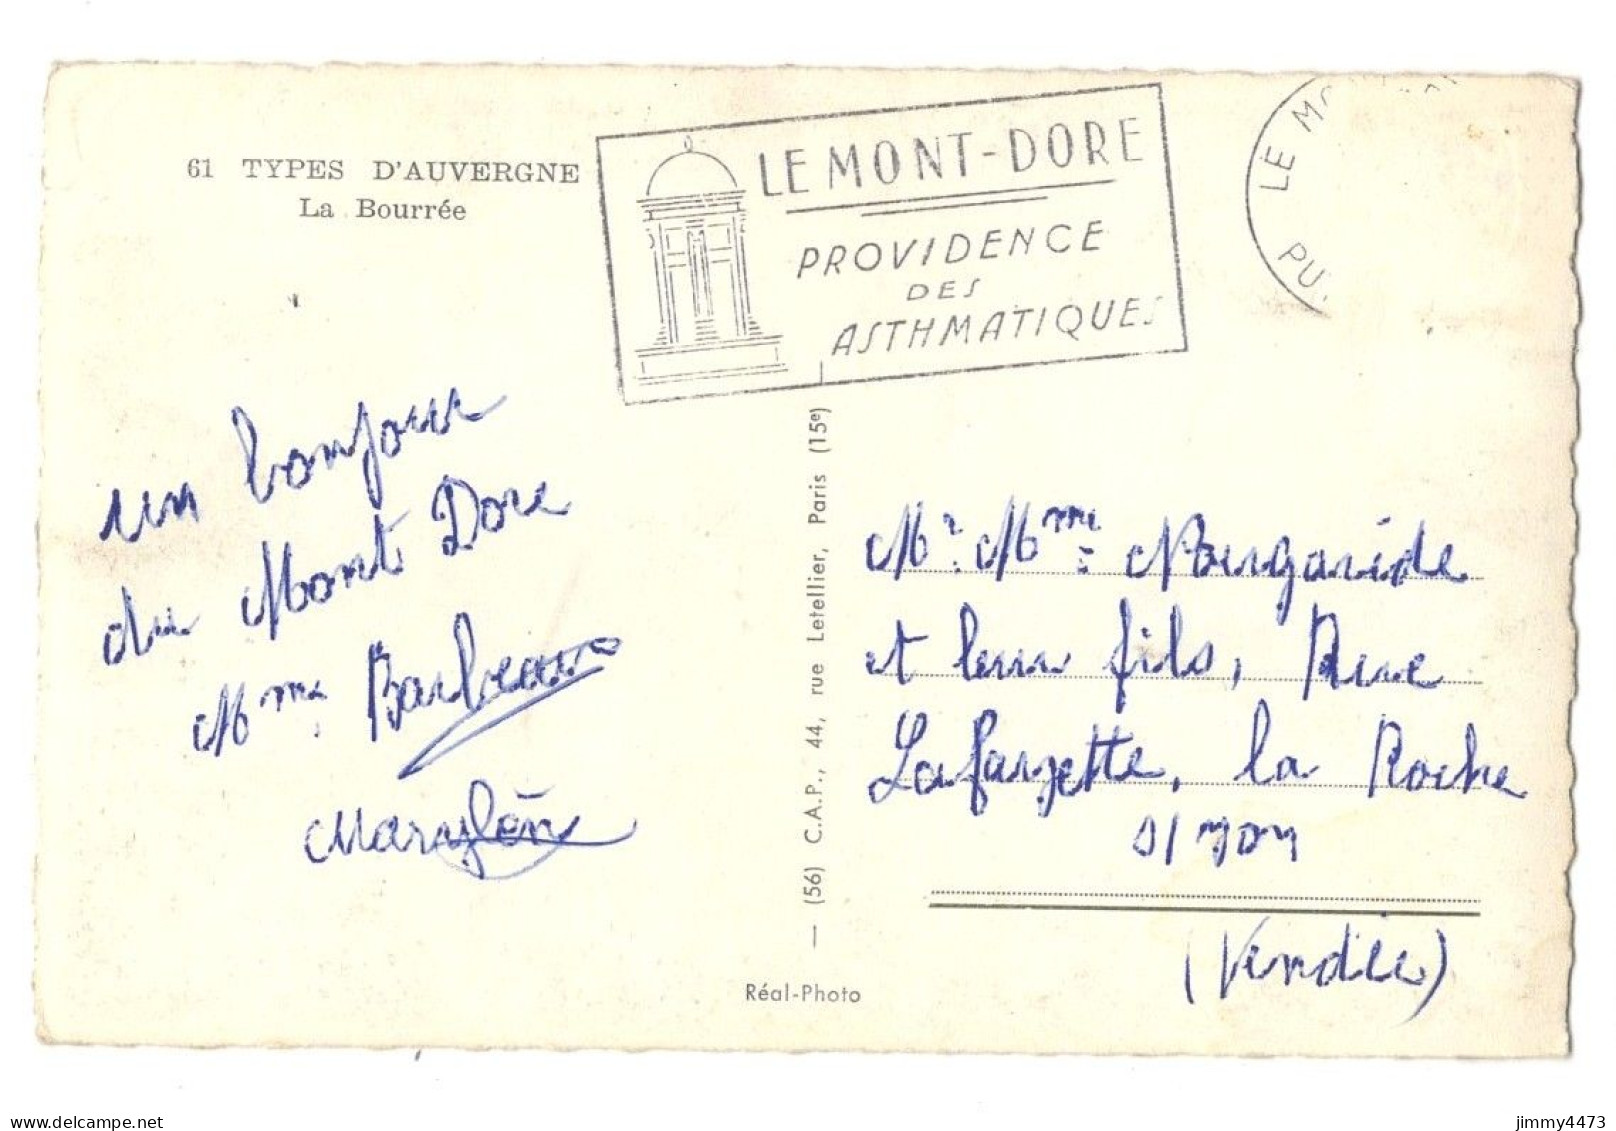 61 TYPES D'AUVERGNE
La Bourrée
LE MONT-DORE
PROVIDENCE
DES
ASTHMATIQUES
LE MO
PU
un bonjour
du Mont Dore
Mme Barbeau
Marylèn
— (56) C.A.P., 44, rue Letellier, Paris (15e)
Réal-Photo
Mr. Mme: Margaride
et leur fils, Rue
Lafayette, la Roche
s/ yon
(Vendée)
delcampe.net
jimmy4473